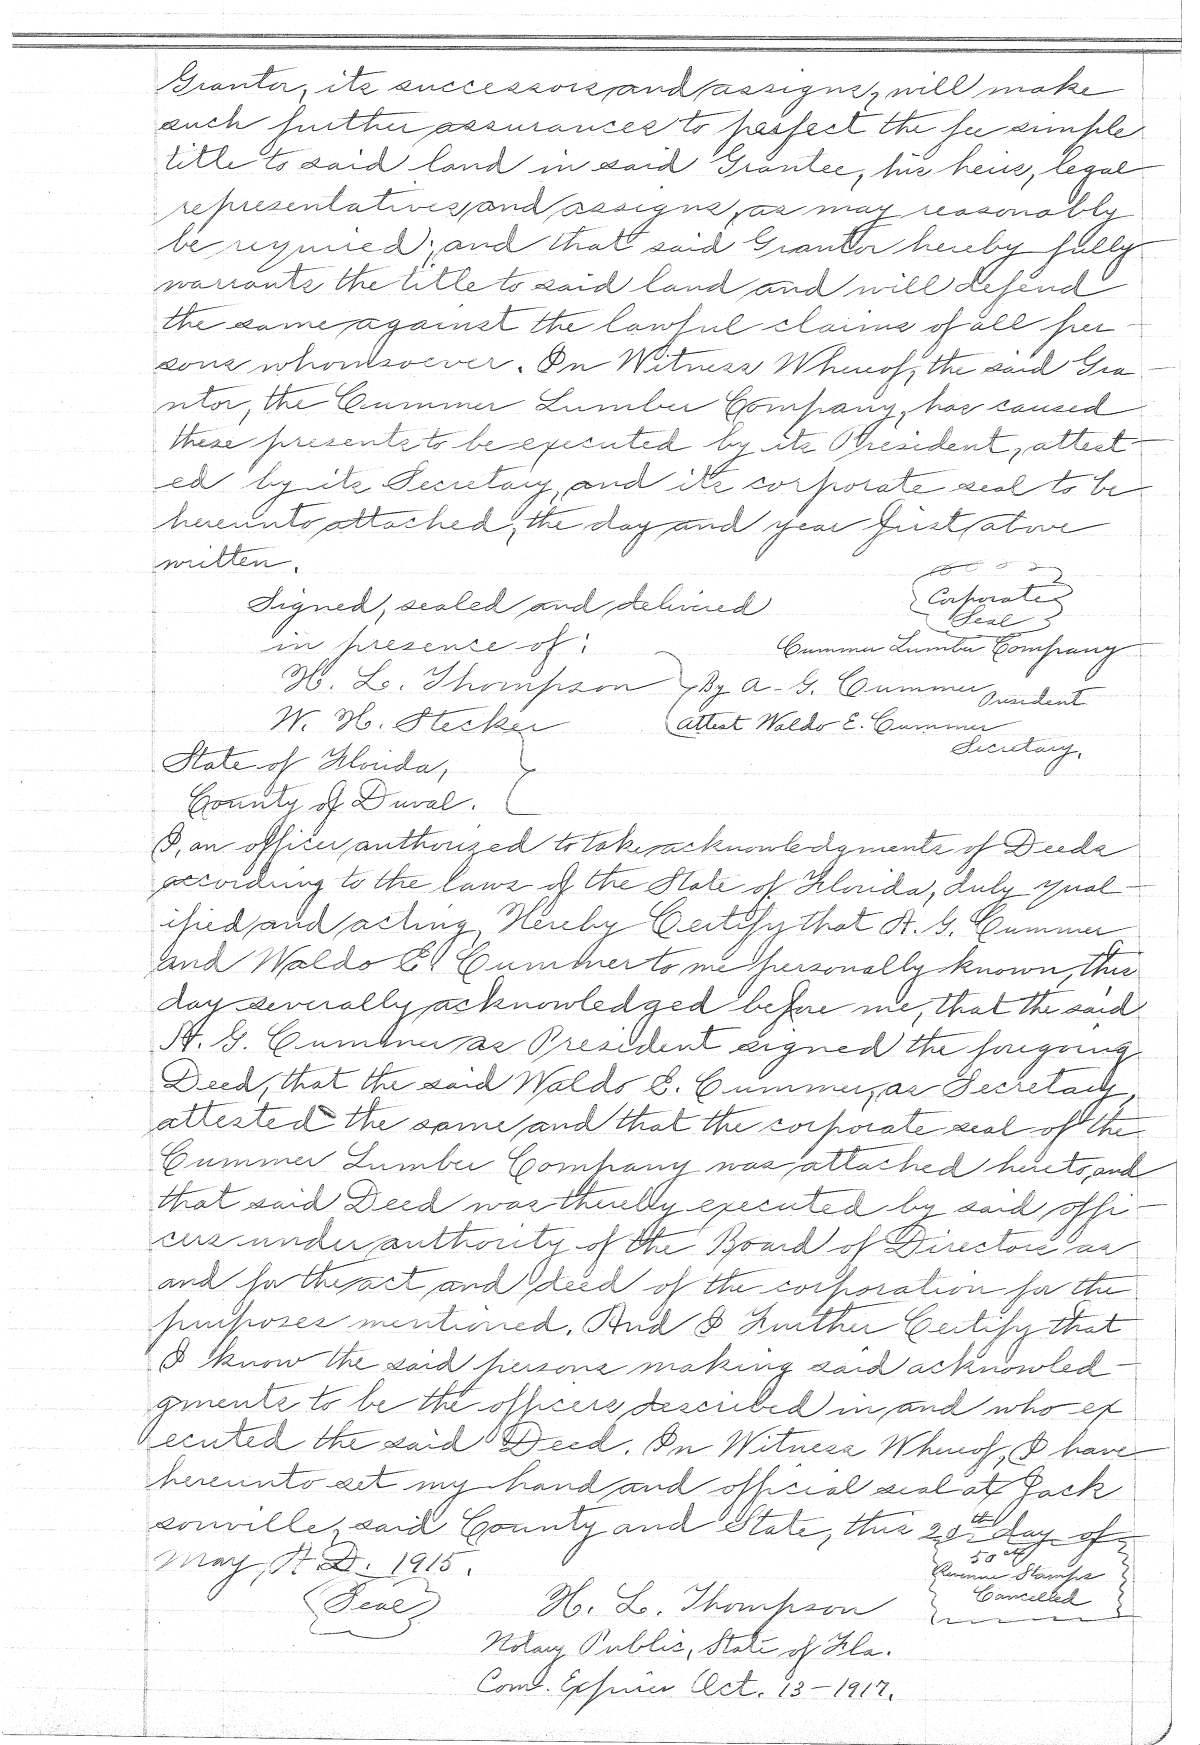 Grantor, its successors and assigns, will make
such further assurances to perfect the fee simple
title to said land in said Grantee, his heirs, legal
representatives, and assigns, as may reasonably
be required; and that said Grantor hereby fully
warrants the title to said land and will defend
the same against the lawful claims of all per-
sons whomsoever. In Witness Whereof, the said Gra-
ntor, the Cummer Lumber Company, has caused
these presents to be executed by its President, attest-
ed by its Secretary, and its corporate seal to be
hereunto attached, the day and year first above
written.
Corporate
Seal
Signed, sealed and delivered
in presence of:
Cummer Lumber Company
H. L. Thompson
By A. G. Cummer President
W. H. Stecker
attest Waldo E. Cummer
Secretary.
State of Florida,
County of Duval.
I, an officer authorized to take acknowledgments of Deeds
according to the laws of the State of Florida, duly qual-
ified and acting, Hereby Certify that A. G. Cummer
and Waldo E. Cummer to me personally known, this
day severally acknowledged before me, that the said
A. G. Cummer as President signed the foregoing
Deed, that the said Waldo E. Cummer, as Secretary,
attested the same and that the corporate seal of the
Cummer Lumber Company was attached hereto, and
that said Deed was thereby executed by said offi-
cers under authority of the Board of Directors as
and for the act and deed of the corporation for the
purposes mentioned. And I Further Certify that
I know the said persons making said acknowled-
gments to be the officers described in and who ex
ecuted the said Deed. In Witness Whereof, I have
hereunto set my hand and official seal at Jack
sonville, said County and State, this 20th day of
May, A.D. 1915.
50 cts
Revenue Stamps
Cancelled
Seal
H. L. Thompson
Notary Public, State of Fla.
Com. Expires Oct. 13-1917.